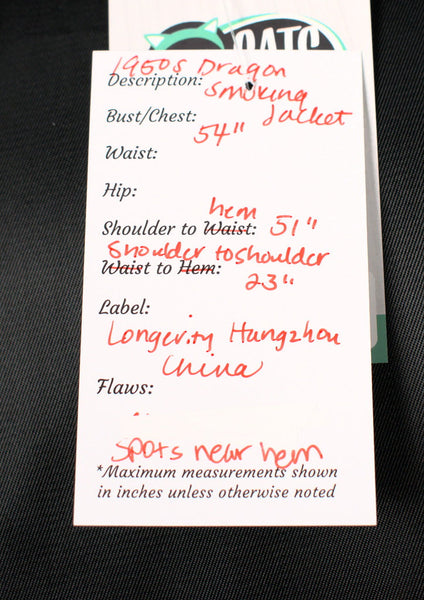 CATS
1950s Dragon
Description: Smoking
Bust/Chest: Jacket
54"
Waist:
Hip:
hem
Shoulder to Waist: 51"
Shoulder to shoulder
Waist to Hem:
23"
Label:
Longevity Hangzhou
China
Flaws:
spots near hem
*Maximum measurements shown
in inches unless otherwise noted